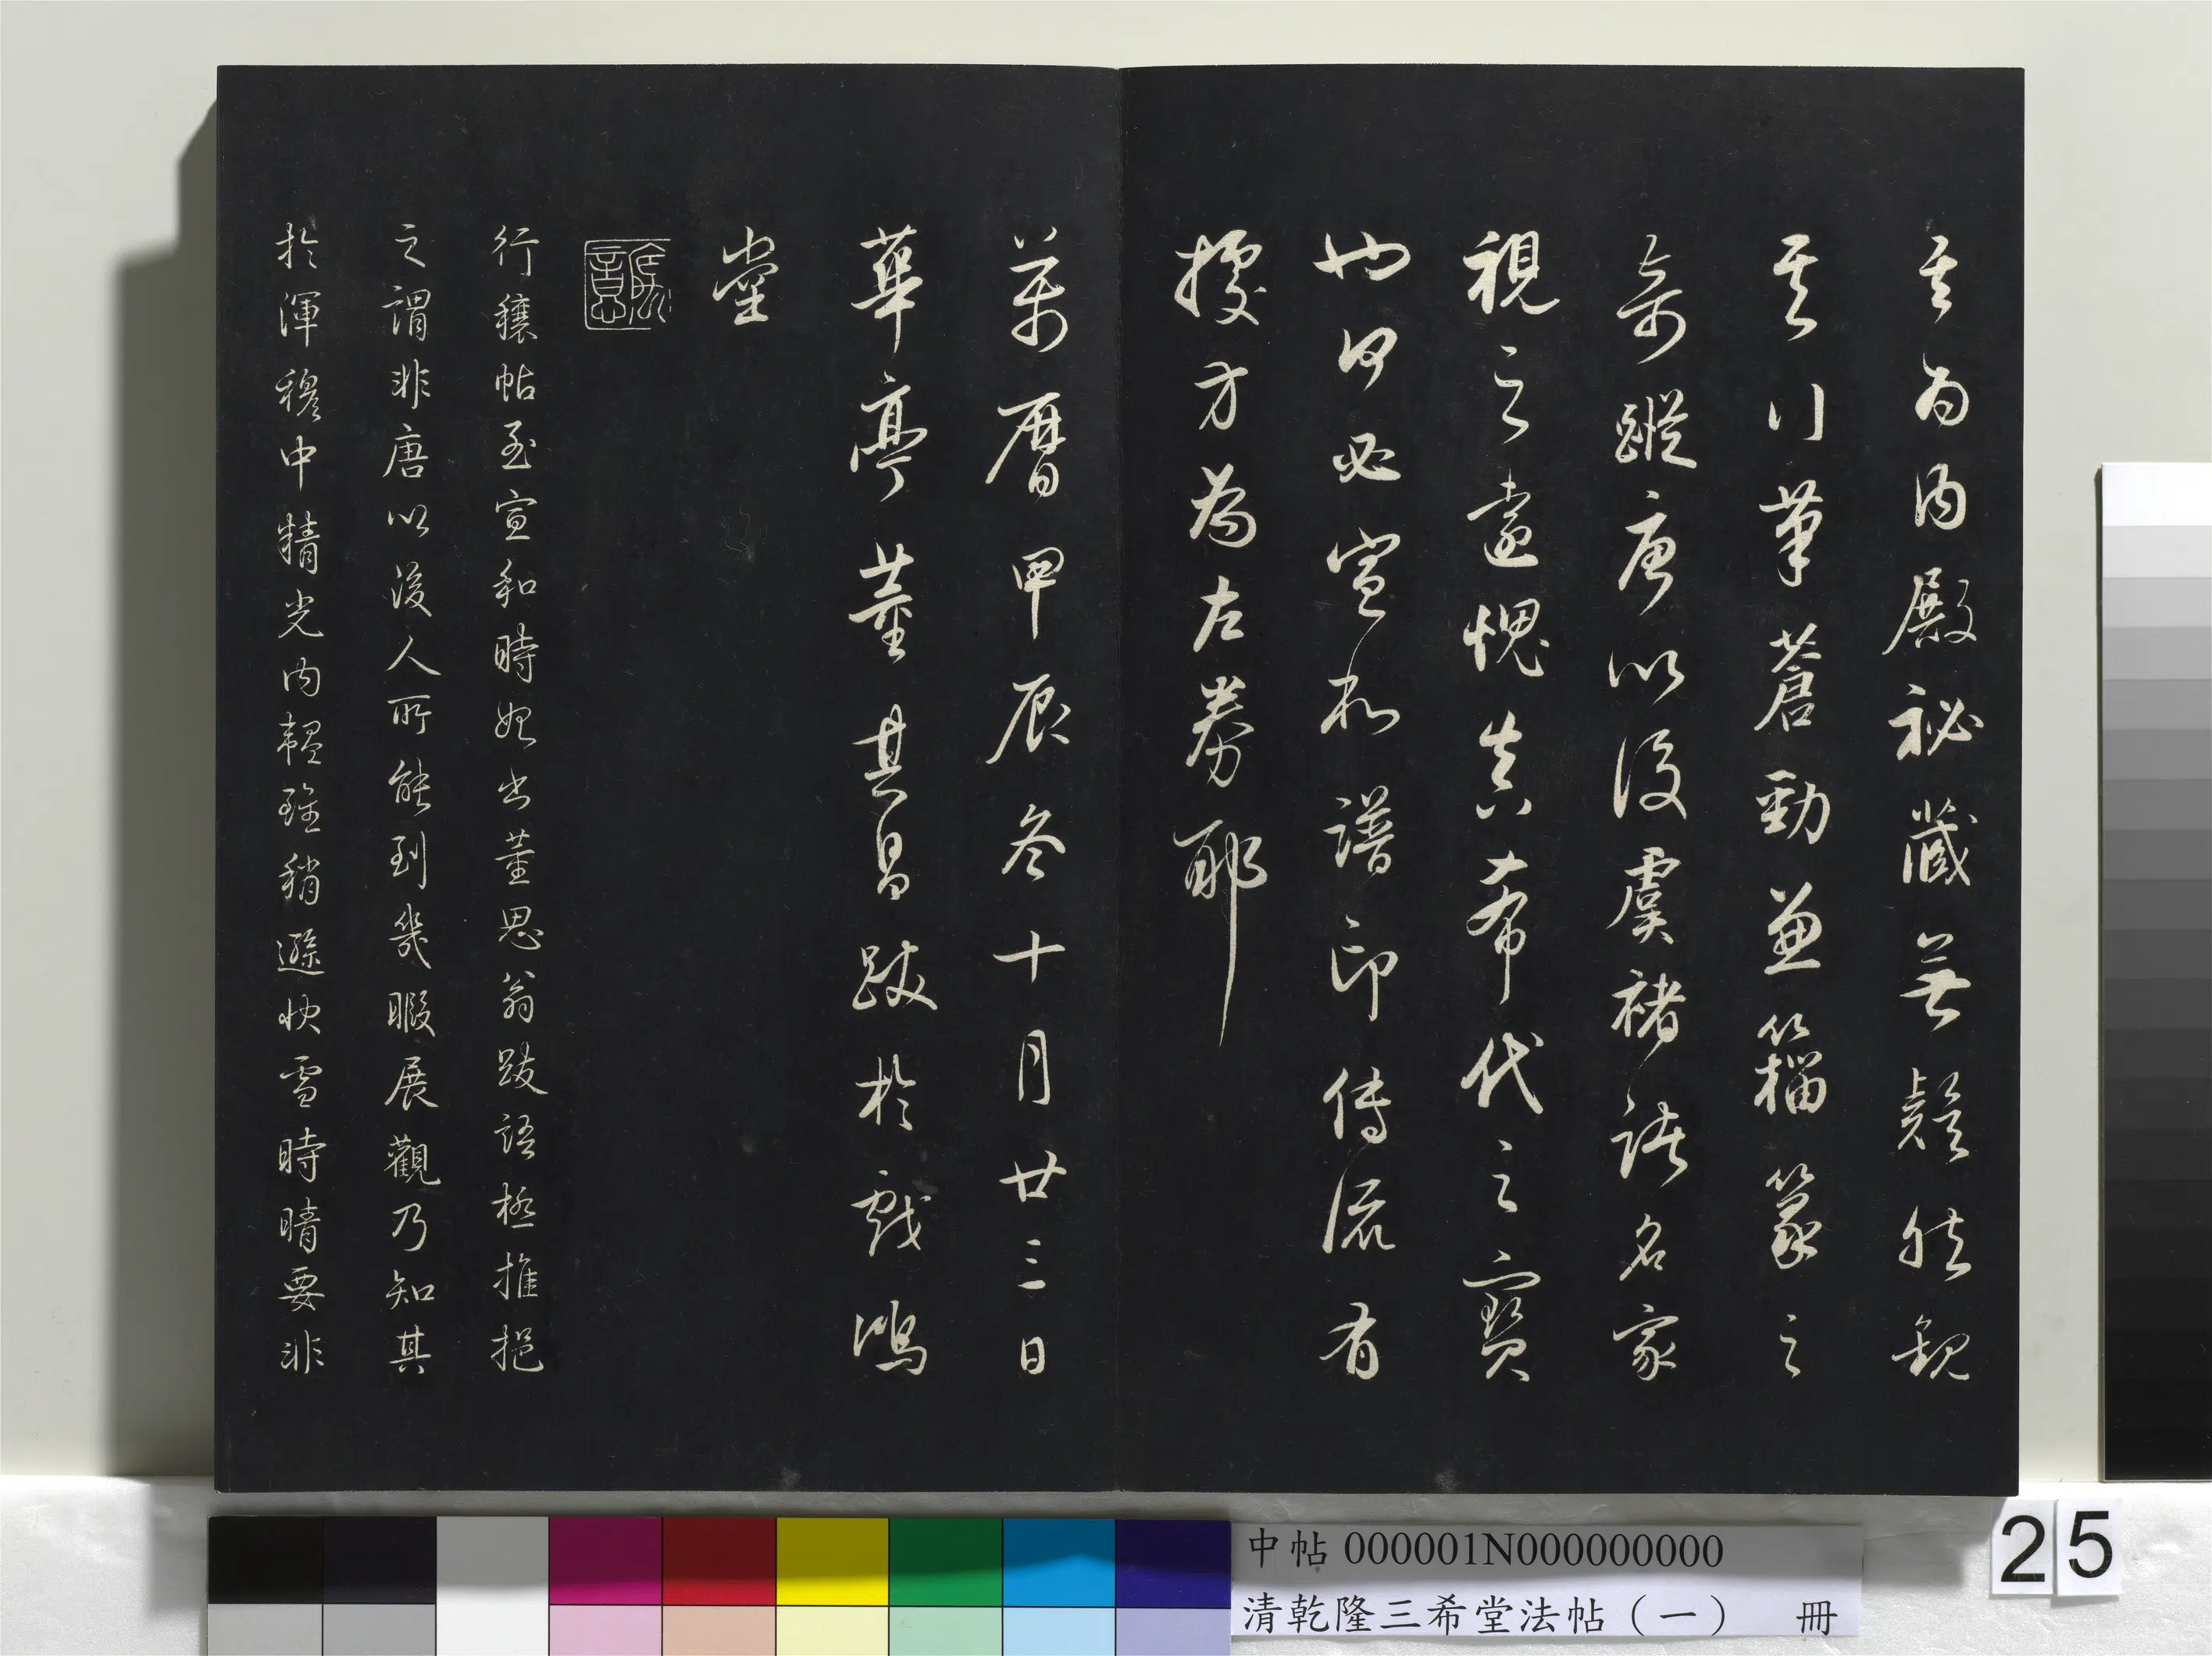 其為內殿秘藏無疑然觀
其行筆蒼勁兼籀篆之
奇蹤唐以後虞褚諸名家
視之遠愧真希代之寶
也何必宣和譜印傳流有
據方為左券耶
萬曆甲辰冬十月廿三日
華亭董其昌跋於戲鴻
堂
行穰帖至宣和時始出董思翁跋語極推挹
之謂非唐以後人所能到幾暇展觀乃知其
於渾穆中精光內韞雖稍遜快雪時晴要非
中帖 000001N000000000
清乾隆三希堂法帖（一） 冊
25